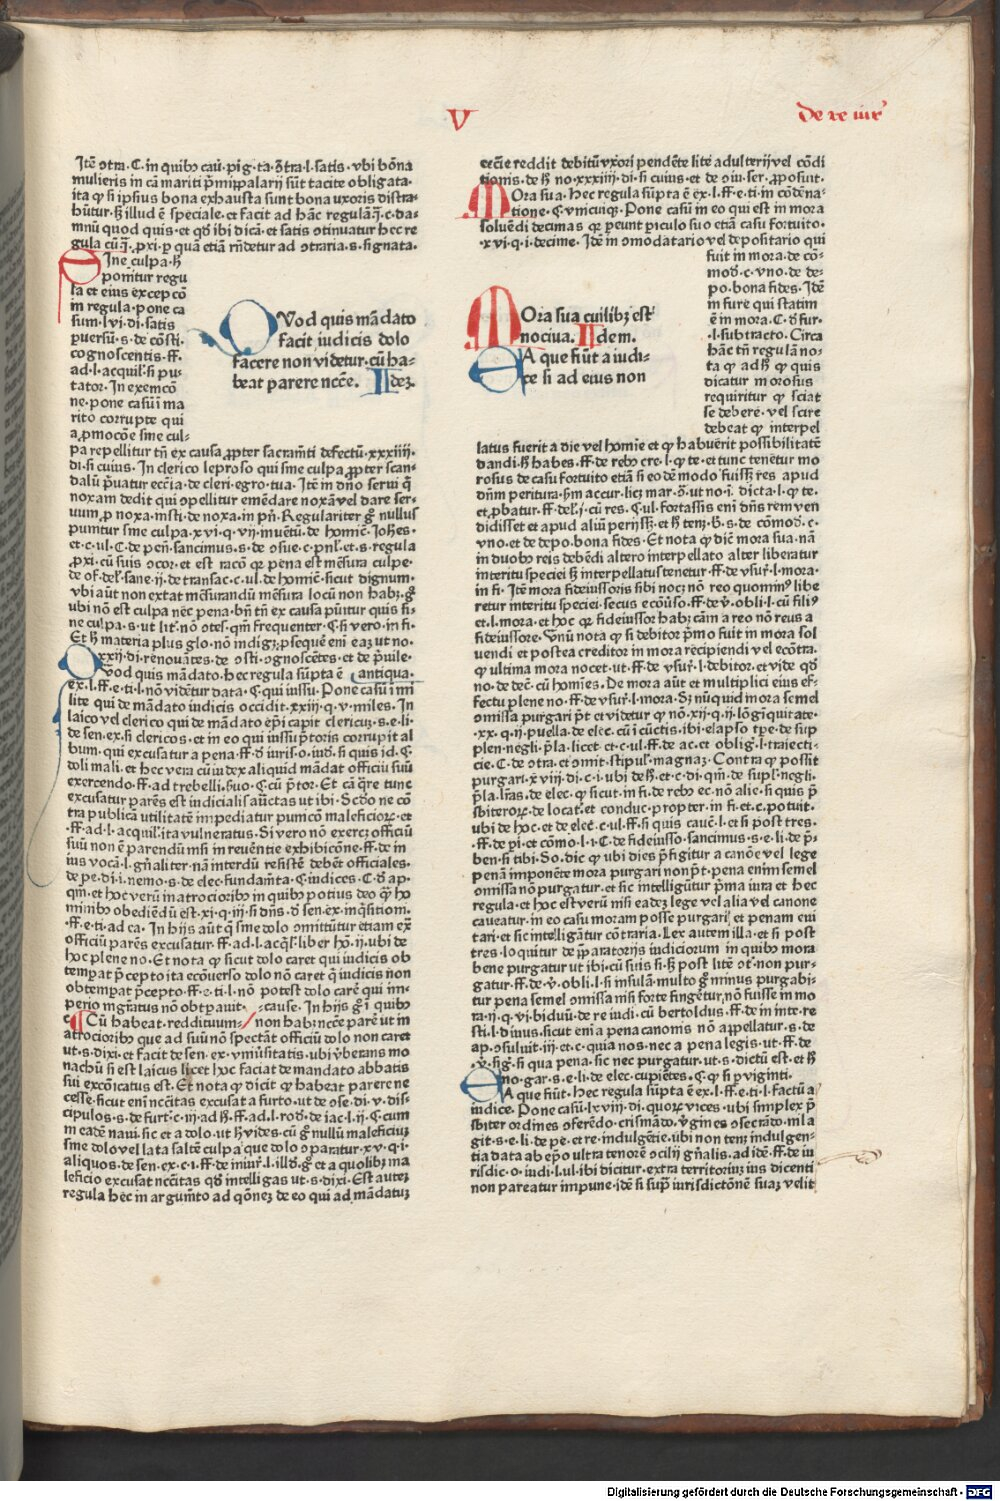 V
De re iur
Itē ↄtra. C. in quibꝰ cau. pig. ta. ↄ̄tra. l. satis. vbi bōna
mulieris in cā mariti pͥmipalarij sūt tacite obligata.
ita ꝙ si ipsius bona exhausta sunt bona vxoris distra-
hūtur. ꝫ illud ē speciale. et facit ad hāc regulā. j. c. da-
mnū quod quis. et qd̄ ibi dicā. et satis ↄtinuatur hec re
gula cū. j. ꝓxi. ꝑ quā etiā rn̄detur ad ↄtraria. s. signata.
Sine culpa. h̄
ponitur regu
la et eius excepcō
in regula. pone ca
sum. lvi. di. satis
ꝑuersū. s. de cōsti.
cognoscentis. ff.
ad. l. acquil. si pu-
tator. In exemcō
ne. pone casū ī ma
rito corrupte qui
a ꝓmocōe sine cul-
pa repellitur tn̄ ex causa ꝓpter sacram̄ti defectū. xxxiiij.
di. si cuius. In clerico leproso qui sine culpa ꝓpter scan-
dalū pͥuatur ecc̄ia. de cleri. egro. tua. Itē in dn̄o serui q̄
noxam dedit qui ↄpellitur emēdare noxā vel dare ser-
uum ꝓ noxa. insti. de noxa. in pn̄. Regulariter gͦ nullus
punitur sine culpa. xvi. q. vij. inuētū. de homic̄. Johēs.
et. c. ul. C. de pen̄. sancimus. s. de ↄsue. c. pnl̄. et. s. regula
ꝓxi. cū suis ↄcor. et est racō qꝛ pena est mēsura culpe.
de of. del̄. sane. ij. de transac. c. ul. de homic̄. sicut dignum.
vbi aūt non extat mēsurandū mēsura locū non habꝫ. gͦ
ubi nō est culpa nec pena. bn̄ tn̄ ex causa pūitur quis si-
ne culpa. s. ut lit. nō ↄtes. qm̄ frequenter. C. si vero. in fi.
Et h̄ materia plus glo. nō indigꝫ. ꝑsequē eni eaꝫ ut no.
xxij. di. renouātes. de ↄsti. ↄgnoscētes. et de pͥuile.
Qvod quis mādato. hec regula sūpta ē antiqua.
ex. l. ff. e. ti. l. nō vidētur data. C. qui iussu. Pone casū ī mi
lite qui de mādato iudicis occidit. xxiij. q. v. miles. In
laico vel clerico qui de mādato ep̄i capit clericuꝫ. s. e. li.
de sen. ex. si clericos. et in eo qui iussu pͥtoris corrupit al
bum. qui excusatur a pena. ff. ↄ iuris. o. iud. si quis id. C.
doli mali. et hec vera cū iudex aliquid mādat officiū suū
exercendo. ff. ad trebelli. huo. C. cū pͥtor. Et cā qͣre tunc
excusatur parēs est iudicialis auctas ut ibi. Scd̄o ne cō
tra publicā utilitatē impediatur punicō maleficioꝝ. et
ff. ad. l. acquil. ita vulneratus. Si vero nō exercꝫ officiū
suū non ē parendū nisi in reuēntie exhibicōne. ff. de in
ius vocā. l. gn̄aliter. nā interdū resistē debēt officiales.
de pe. di. i. nemo. s. de elec. fundam̄ta. C. iudices. C. ↄ̄ ap.
qm̄. et hoc verū in atrocioribꝰ in quibꝰ potius deo qͣ ho
minibꝰ obediēdū est. xi. q. iij. si dn̄s. ↄ̄ sen. ex. inqͥsitiom.
ff. e. ti. ad ea. In hijs aūt q̄ sine dolo ↄmittūtur etiam ex̄
officiū parēs excusatur. ff. ad. l. acqͥl. liber hō. ij. ubi de
hoc plene no. Et nota ꝙ sicut dolo caret qui iudicis ob
tempat pͥcepto ita ecōuerso dolo nō caret q̄ iudicis non
obtempat pͥcepto. ff. e. ti. l. nō potest dolo carē qui im-
perio mgr̄atus nō obtꝑauit. cause. In hijs gͦ ī quibꝰ
Cū habeat. reddituum non habꝫ ncc̄e parē ut in
atrocioribꝰ que ad suū nō spectāt officiū dolo non caret
ut. s. dixi. et facit de sen. ex. vniūsitatis. ubi v̄berans mo
nachū si est laicus licet hoc faciat de mandato abbatis
sui excōicatus est. Et nota ꝙ dicit ꝙ habeat parere ne
cesse. sicut eni ncc̄itas excusat a furto. ut de ↄse. di. v. dis-
cipulos. s. de furt. c. iij. ad h̄. ff. ad. l. rod. de iac. l. ij. C. cum
in eadē naui. sic et a dolo. ut h̄ vides. cū gͦ nullū maleficiuꝫ
sine dolo vel lata saltē culpa que dolo ↄparatur. xv. q. i.
aliquos. de sen. ex. c. i. ff. de iniur̄. l. illd̄. gͦ et a quolibꝫ ma
leficio excusat ncc̄itas qd̄ intelligas ut. s. dixi. Est auteꝫ
regula hec in argum̄to ad qōneꝫ de eo qui ad mādatuꝫ
Qvod quis mādato
facit iudicis dolo
facere non videtur. cū ha-
beat parere ncc̄e. Ideꝫ.
ecc̄ie reddit debitū vxori pendēte lite adulterij vel cōdi
tionis. de h̄ no. xxxiiij. di. si cuius. et de ↄiu. ser. ꝓposuit.
Mora sua. Hec regula sūpta ē ex. l. ff. e. ti. in cōdēna-
tione. C. vnicuiqꝫ. Pone casū in eo qui est in mora
soluēdi decimas qꝛ ꝑeunt ꝑiculo suo etiā casu fortuito.
xvi. q. i. decime. Idē in ↄmodatario vel depositario qui
fuit in mora. de cō-
mod̄. c. vno. de de-
po. bona fides. Idē
in fure qui statim
ē in mora. C. ↄ̄ fur.
l. subtracto. Circa
hāc tn̄ regulā no-
ta ꝙ ad h̄ ꝙ quis
dicatur morosus
requiritur ꝙ sciat
se debere. vel scire
debeat ꝙ interpel
latus fuerit a die vel homie et ꝙ habuerit possibilitatē
dandi. h̄ habes. ff. de rebꝰ cre. l. ꝙ te. et tunc tenētur mo
rosus de casu fortuito etiā si eo dē modo fuissꝫ res apud
dn̄m peritura. h̄m accur. licꝫ mar. ↄ̄. ut no. ī. dicta. l. ꝙ te.
et. ꝓbatur. ff. del̄. j. cū res. C. ul. fortassis eni dn̄s rem ven
didisset et apud aliū perijssꝫ. et h̄ tenꝫ. b̄. s. de cōmod̄. c.
vno. et de depo. bona fides. Et nota ꝙ dic̄m mora sua. nā
in duobꝰ reis debēdi altero interpellato alter liberatur
interitu speciei ꝫ interpellatus tenetur. ff. de vsur̄. l. mora.
in fi. Itē mora fideiussoris sibi nocꝫ nō reo quominꝰ libe
retur interitu speciei. secus ecōuso. ff. de v̄. obli. l. cū filiꝰ
et. l. mora. et hoc qꝛ fideiussor habꝫ cām a reo nō reus a
fideiussore. Vnū nota ꝙ si debitor pͥmo fuit in mora sol
uendi et postea creditor in mora recipiendi vel ecōtra.
ꝙ ultima mora nocet. ut. ff. de vsur̄. l. debitor. et vide qd̄
no. de dec̄. cū homies. De mora aūt et multiplici eius ef-
fectu plene no. ff. de vsur̄. l. mora. Sꝫ nūquid mora semel
omissa purgari pͥt et videtur ꝙ nō. xij. q. ij. lōgiquitate.
xx. q. ij. puella. de elec. cū ī cūctis. ibi. elapso tꝑe. de sup
plen. negli. pͥla. licet et. c. ul. ff. de ac. et oblig. l. traiecti-
cie. C. de ↄtra. et ↄmit. stipul. magnaꝫ. Contra ꝙ possit
purgari. xviij. di. c. i. ubi de h̄. et. c. di. qm̄. de supl. negli.
pͥla. lr̄as. de elec. ꝙ sicut. in fi. de rebꝰ ec. nō alie. si quis pͥ
sbiteroꝝ. de locat. et conduc. propter. in fi. et. c. potuit.
ubi de hoc. et de elec̄. c. ul. ff. si quis cauc̄. l. et si post tres.
ff. de pͥi. et cōmo. l. i. C. de fideiusso. sancimus. s. e. li. de pͥ-
ben. si tibi. So. dic ꝙ ubi dies pͥfigitur a canōe vel lege
penā imponēte mora purgari non pͥt. pena enim semel
ↄmissa non purgatur. et sic intelligūtur pͥma iura et hec
regula. et hoc est verū nisi eadeꝫ lege vel alia vel canone
caueatur. in eo casu moram posse purgari et penam eui
tari. et sic intelligātur cōtraria. Lex autem illa. et si post
tres. loquitur de pͥparatorijs iudiciorum in quibꝰ mora
bene purgatur ut ibi. cū suis si. ꝫ post litē ↄt. non pur-
gatur. ff. de. v̄. obli. l. si insulā. multo gͦ minus purgabi-
tur pena semel ↄmissa nisi forte fingētur nō fuisse in mo
ra. ij. q. vi. biduū. de re iudi. cū bertoldus. ff. de in inte. re
sti. l. diuus. sicut eni a pena canonis nō appellatur. s. de
ap. ↄsuluit. iij. et. c. quia nos. nec a pena legis. ut. ff. de
v̄. sig. si qua pena. sic nec purgatur. ut. s. dictū est. et h̄
no. gar. s. e. li. de elec. cupiētes. C. ꝙ si ꝑ viginti.
EA que fiūt. Hec regula sūpta ē ex. l. ff. e. ti. l. factū a
iudice. Pone casū. lxviij. di. quoꝝ vices. ubi simplex pͥ
sbiter ordines ↄferēdo. crismādo. v̄gines ↄsecrādo. nil a
git. s. e. li. de pe. et re. indulgētie. ubi non tenꝫ indulgen-
tia data ab ep̄o ultra tenorē ↄcilij gn̄alis. ad idē. ff. de iu
risdic. o. iudi. l. ul. ibi dicitur. extra territorium ius dicenti
non pareatur impune. idē si supͣ iurisdictōnē suaꝫ velit
Mora sua cuilibꝫ est
nociua. Idem.
EA que fiūt a iudi-
ce si ad eius non
Digitalisierung gefördert durch die Deutsche Forschungsgemeinschaft - DFG